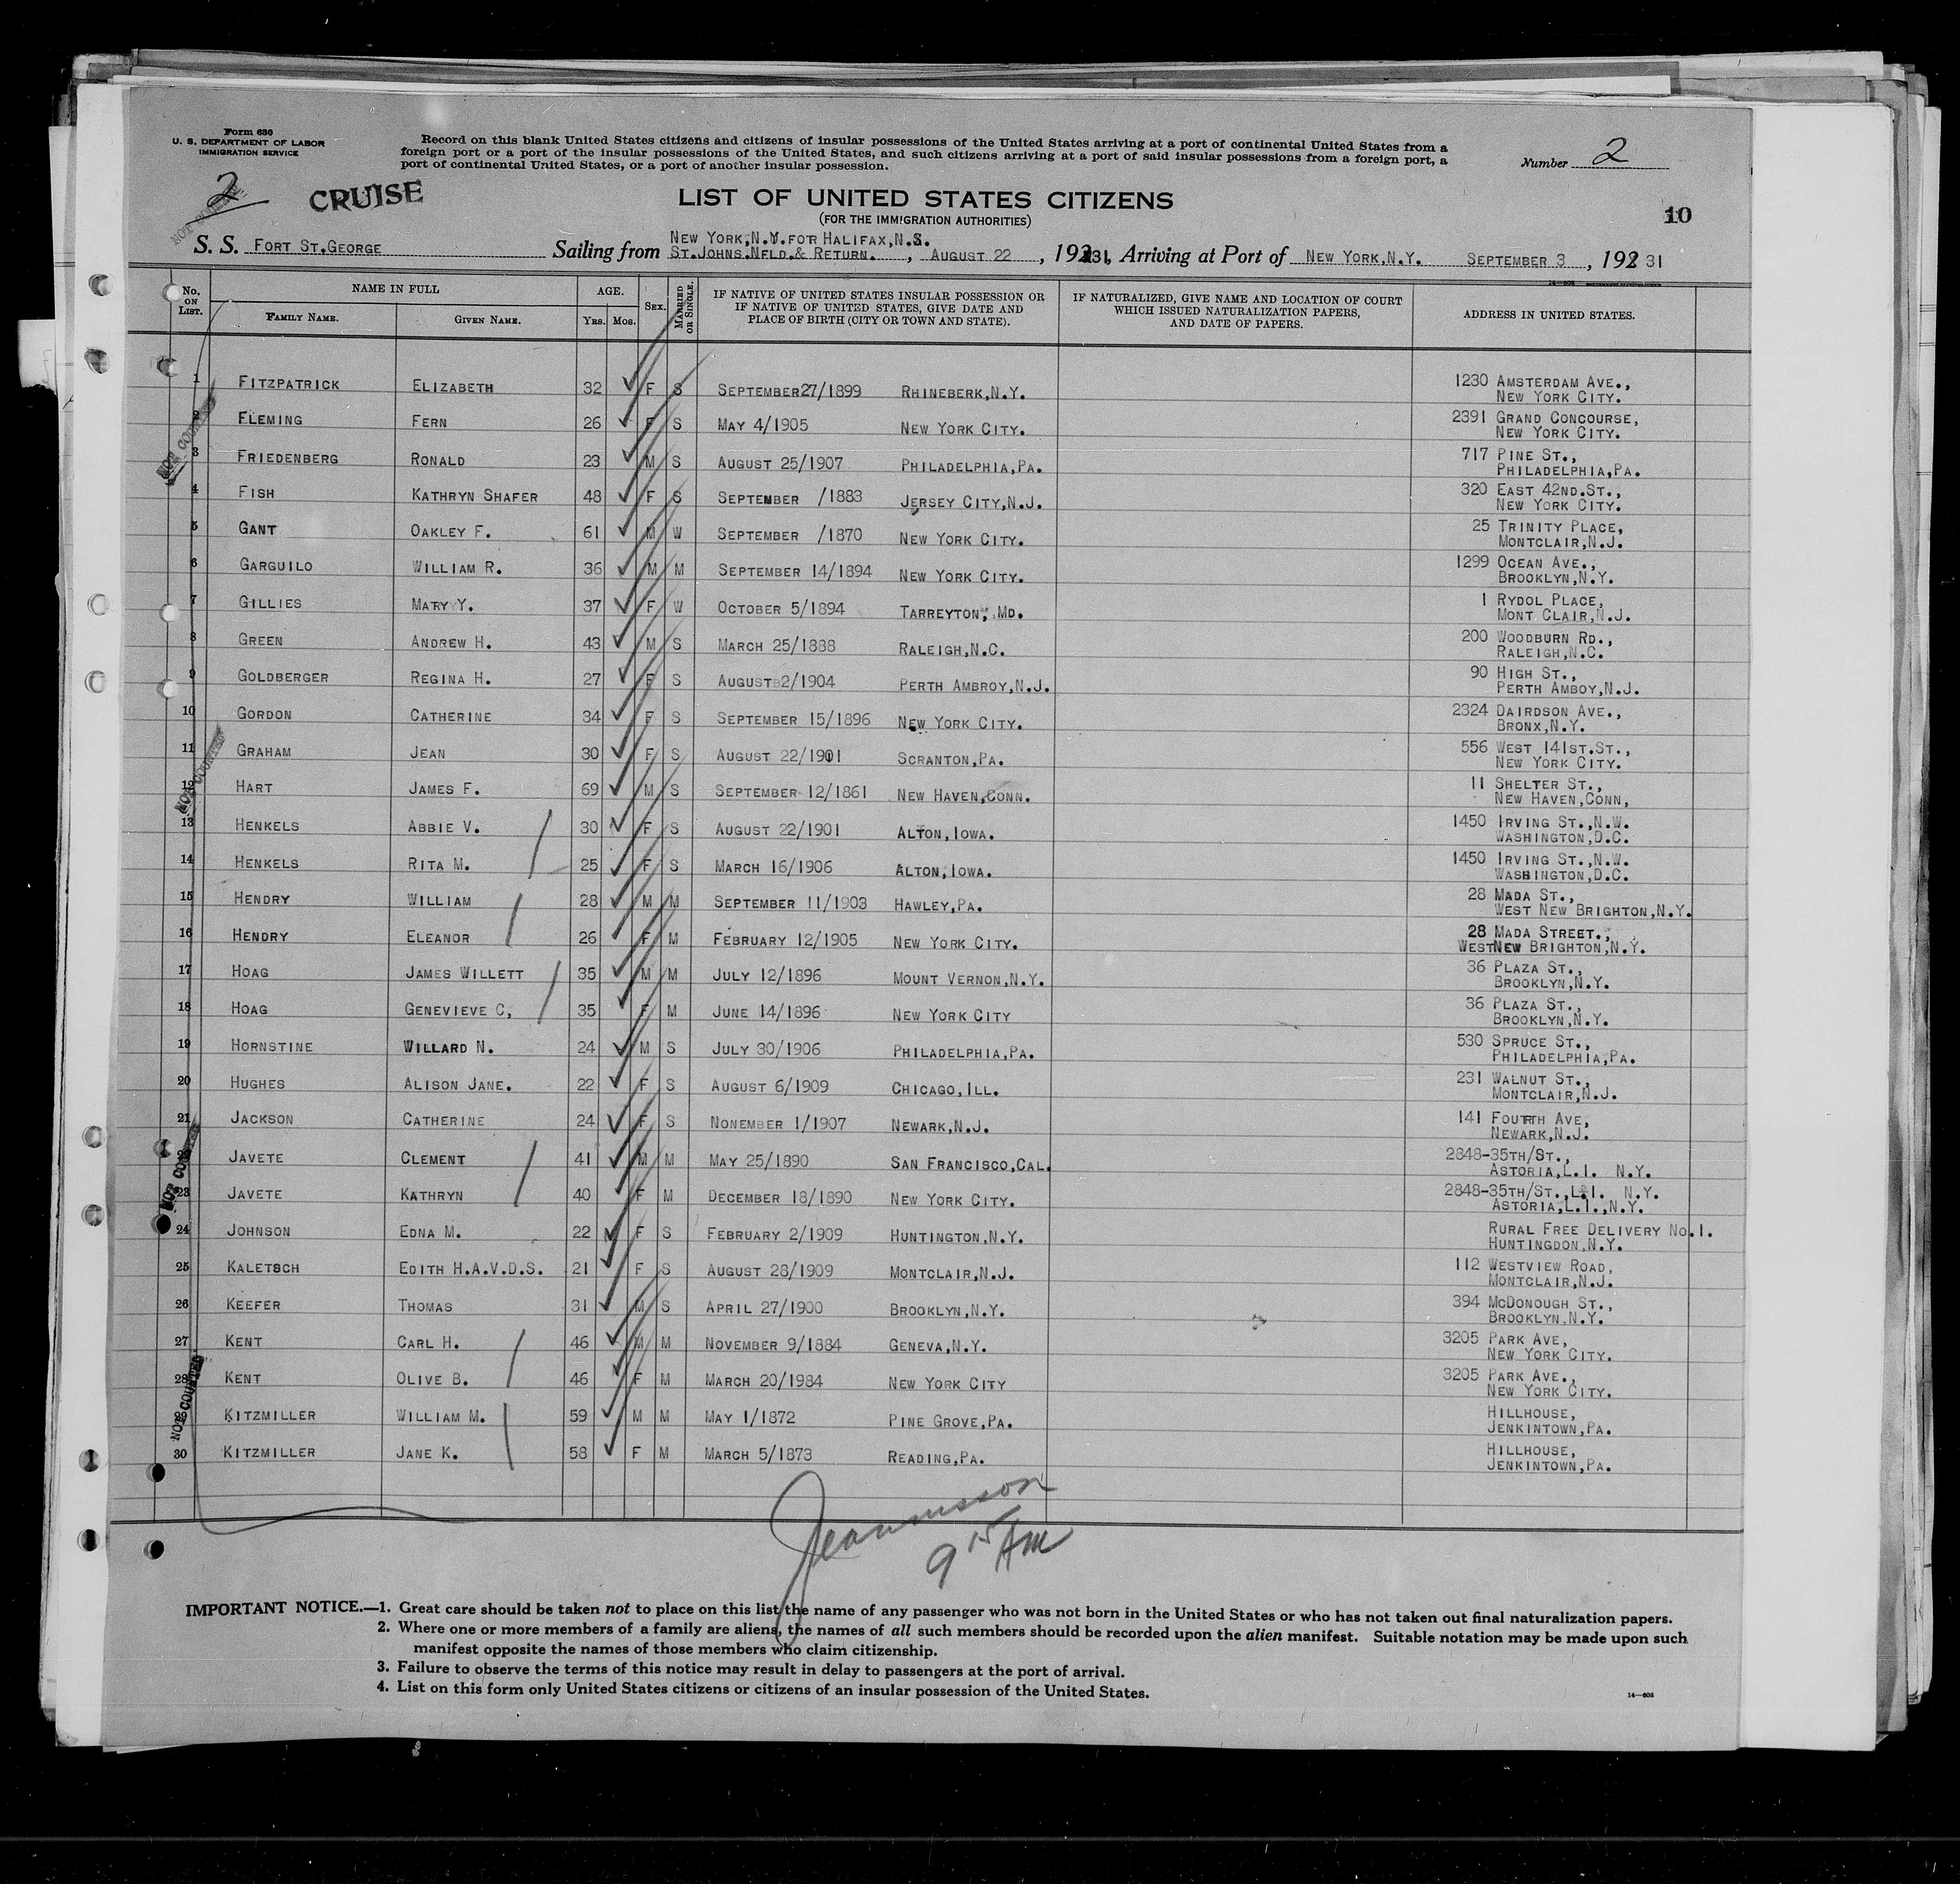 Form 630
U. S. DEPARTMENT OF LABOR
IMMIGRATION SERVICE
Record on this blank United States citizens and citizens of insular possessions of the United States arriving at a port of continental United States from a
foreign port or a port of the insular possessions of the United States, and such citizens arriving at a port of said insular possessions from a foreign port, a
port of continental United States, or a port of another insular possession.
Number 2
2
CRUISE
LIST OF UNITED STATES CITIZENS
(FOR THE IMMIGRATION AUTHORITIES)
10
NEW YORK,N.Y.FOR HALIFAX,N.S.
S. S. FORT ST.GEORGE Sailing from ST.JOHNS.NFLD.& RETURN. , AUGUST 22 , 19231, Arriving at Port of NEW YORK,N.Y. SEPTEMBER 3 , 192 31
No. ON LIST. NAME IN FULL AGE. SEX. MARRIED OR SINGLE. IF NATIVE OF UNITED STATES INSULAR POSSESSION OR IF NATIVE OF UNITED STATES, GIVE DATE AND PLACE OF BIRTH (CITY OR TOWN AND STATE). IF NATURALIZED, GIVE NAME AND LOCATION OF COURT WHICH ISSUED NATURALIZATION PAPERS, AND DATE OF PAPERS. ADDRESS IN UNITED STATES.
FAMILY NAME. GIVEN NAME. YRS. MOS.
1 FITZPATRICK ELIZABETH 32 F S SEPTEMBER27/1899 RHINEBERK,N.Y. 1230 AMSTERDAM AVE.,
NEW YORK CITY.
2 FLEMING FERN 26 F S MAY 4/1905 NEW YORK CITY. 2391 GRAND CONCOURSE,
NEW YORK CITY.
3 FRIEDENBERG RONALD 23 M S AUGUST 25/1907 PHILADELPHIA,PA. 717 PINE ST.,
PHILADELPHIA,PA.
4 FISH KATHRYN SHAFER 48 F S SEPTEMBER /1883 JERSEY CITY,N.J. 320 EAST 42ND.ST.,
NEW YORK CITY.
5 GANT OAKLEY F. 61 M W SEPTEMBER /1870 NEW YORK CITY. 25 TRINITY PLACE,
MONTCLAIR,N.J.
6 GARGUILO WILLIAM R. 36 M M SEPTEMBER 14/1894 NEW YORK CITY. 1299 OCEAN AVE.,
BROOKLYN,N.Y.
7 GILLIES MARY Y. 37 F W OCTOBER 5/1894 TARREYTON, MD. 1 RYDOL PLACE,
MONT CLAIR,N.J.
8 GREEN ANDREW H. 43 M S MARCH 25/1888 RALEIGH,N.C. 200 WOODBURN RD.,
RALEIGH,N.C.
9 GOLDBERGER REGINA H. 27 F S AUGUST 2/1904 PERTH AMBROY,N.J. 90 HIGH ST.,
PERTH AMBOY,N.J.
10 GORDON CATHERINE 34 F S SEPTEMBER 15/1896 NEW YORK CITY. 2324 DAIRDSON AVE.,
BRONX,N.Y.
11 GRAHAM JEAN 30 F S AUGUST 22/1901 SCRANTON,PA. 556 WEST 141ST.ST.,
NEW YORK CITY.
12 HART JAMES F. 69 M S SEPTEMBER 12/1861 NEW HAVEN,CONN. 11 SHELTER ST.,
NEW HAVEN,CONN,
13 HENKELS ABBIE V. 30 F S AUGUST 22/1901 ALTON,IOWA. 1450 IRVING ST.,N.W.
WASHINGTON,D.C.
14 HENKELS RITA M. 25 F S MARCH 16/1906 ALTON,IOWA. 1450 IRVING ST.,N.W.
WASHINGTON,D.C.
15 HENDRY WILLIAM 28 M M SEPTEMBER 11/1903 HAWLEY,PA. 28 MADA ST.,
WEST NEW BRIGHTON,N.Y.
16 HENDRY ELEANOR 26 F M FEBRUARY 12/1905 NEW YORK CITY. 28 MADA STREET.,
WESTNEW BRIGHTON,N.Y.
17 HOAG JAMES WILLETT 35 M M JULY 12/1896 MOUNT VERNON,N.Y. 36 PLAZA ST.,
BROOKLYN,N.Y.
18 HOAG GENEVIEVE C, 35 F M JUNE 14/1896 NEW YORK CITY 36 PLAZA ST.,
BROOKLYN,N.Y.
19 HORNSTINE WILLARD N. 24 M S JULY 30/1906 PHILADELPHIA,PA. 530 SPRUCE ST.,
PHILADELPHIA,PA.
20 HUGHES ALISON JANE. 22 F S AUGUST 6/1909 CHICAGO,ILL. 231 WALNUT ST.,
MONTCLAIR,N.J.
21 JACKSON CATHERINE 24 F S NONEMBER 1/1907 NEWARK,N.J. 141 FOURTH AVE,
NEWARK,N.J.
22 JAVETE CLEMENT 41 M M MAY 25/1890 SAN FRANCISCO,CAL. 2848-35TH/ST.,
ASTORIA,L.I. N.Y.
23 JAVETE KATHRYN 40 F M DECEMBER 18/1890 NEW YORK CITY. 2848-35TH/ST.,L.I. N.Y.
ASTORIA,L.I.,N.Y.
24 JOHNSON EDNA M. 22 F S FEBRUARY 2/1909 HUNTINGTON,N.Y. RURAL FREE DELIVERY NO.1.
HUNTINGDON,N.Y.
25 KALETSCH EDITH H.A.V.D.S. 21 F S AUGUST 28/1909 MONTCLAIR,N.J. 112 WESTVIEW ROAD,
MONTCLAIR,N.J.
26 KEEFER THOMAS 31 M S APRIL 27/1900 BROOKLYN,N.Y. 394 MCDONOUGH ST.,
BROOKLYN,N.Y.
27 KENT CARL H. 46 M M NOVEMBER 9/1884 GENEVA,N.Y. 3205 PARK AVE,
NEW YORK CITY.
28 KENT OLIVE B. 46 F M MARCH 20/1984 NEW YORK CITY 3205 PARK AVE.,
NEW YORK CITY.
29 KITZMILLER WILLIAM M. 59 M M MAY 1/1872 PINE GROVE,PA. HILLHOUSE,
JENKINTOWN,PA.
30 KITZMILLER JANE K. 58 F M MARCH 5/1873 READING,PA. HILLHOUSE,
JENKINTOWN,PA.
NOT COUNTED
NOT COUNTED
NOT COUNTED
NOT COUNTED
9 15 AM
IMPORTANT NOTICE.—1. Great care should be taken not to place on this list the name of any passenger who was not born in the United States or who has not taken out final naturalization papers.
2. Where one or more members of a family are aliens, the names of all such members should be recorded upon the alien manifest. Suitable notation may be made upon such
manifest opposite the names of those members who claim citizenship.
3. Failure to observe the terms of this notice may result in delay to passengers at the port of arrival.
4. List on this form only United States citizens or citizens of an insular possession of the United States.
14—608